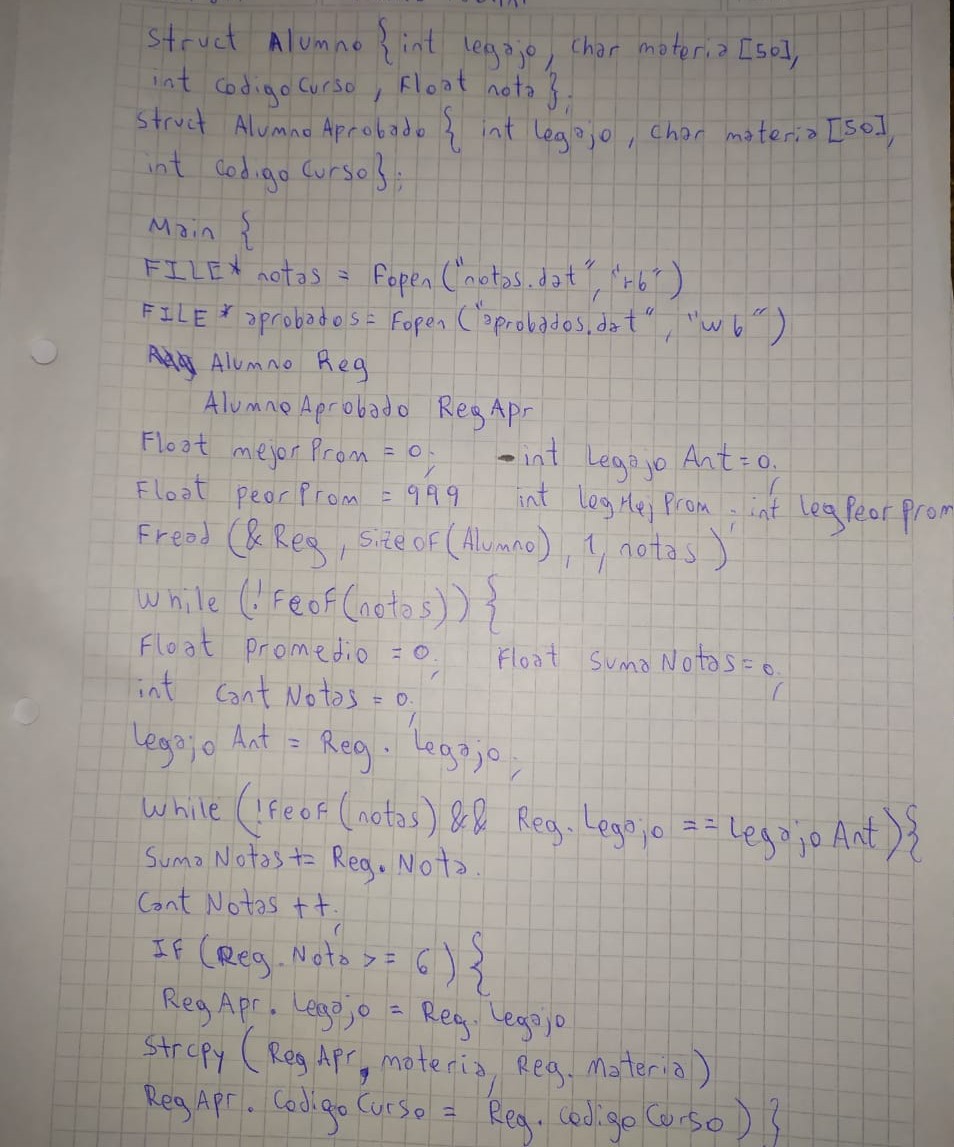 struct Alumno { int legajo, char materia [50],
int codigoCurso, Float nota };
struct AlumnoAprobado { int legajo, char materia [50],
int codigoCurso};
Main {
FILE* notas = Fopen ("notas.dat", "rb")
FILE* aprobados = Fopen ("aprobados.dat", "wb")
Alumno Reg
AlumnoAprobado RegApr
Float mejorProm = 0; int LegajoAnt = 0;
Float peorProm = 999 int legMejProm; int legPeorProm
Fread (&Reg, sizeof(Alumno), 1, notas)
while (!Feof(notas)) {
Float promedio = 0; Float sumaNotas = 0;
int CantNotas = 0;
legajoAnt = Reg.legajo;
while (!feof(notas) && Reg.Legajo == LegajoAnt){
SumaNotas += Reg.Nota.
CantNotas ++;
IF (Reg.Nota >= 6) {
RegApr.Legajo = Reg.Legajo
Strcpy (RegApr, materia, Reg.Materia)
RegApr.CodigoCurso = Reg.codigoCurso) }